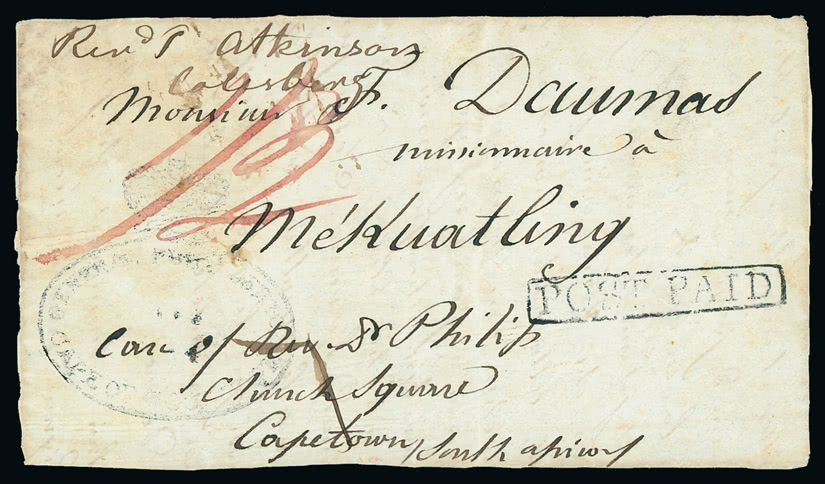 Revd T Atkinson
Colesberg
Monsieur F. Daumas
missionnaire à
MéKuatling
POST PAID
GENERAL POST OFFICE
CAPE OF
Care of Rev. Dr Philip
Church Square
Capetown, South africa